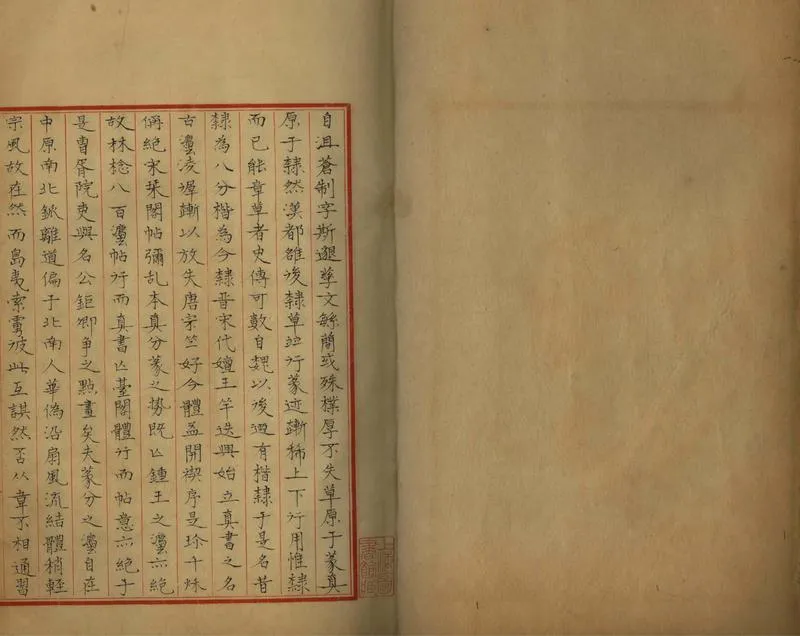 自沮蒼制字斯邈孳文緐簡或殊樸厚不失草原于篆真
原于隸然漢都雒後隸草竝行篆迹漸稀上下行用惟隸
而已能章草者史傳可數自魏以後迺有楷隸于是名昔
隸為八分楷為今隸晉宋代嬗王羊迭興始立真書之名
古灋凌遲漸以放失唐宗竺好今體盇開禊序是珍千秌
偁絕宋槧閣帖彌乱本真分篆之勢既亡鍾王之灋亦絕
故林棯八百灋帖行而真書亡臺閣體行而帖意亦絕于
是曹胥院吏與名公鉅卿爭之點畫矣夫篆分之灋自在
中原南北鈲離道偏于北南人華偽沿扇風流結體稍輕
宗風故在然而島夷索虜彼此互諆然否从韋不相通習
上海圖
書館藏